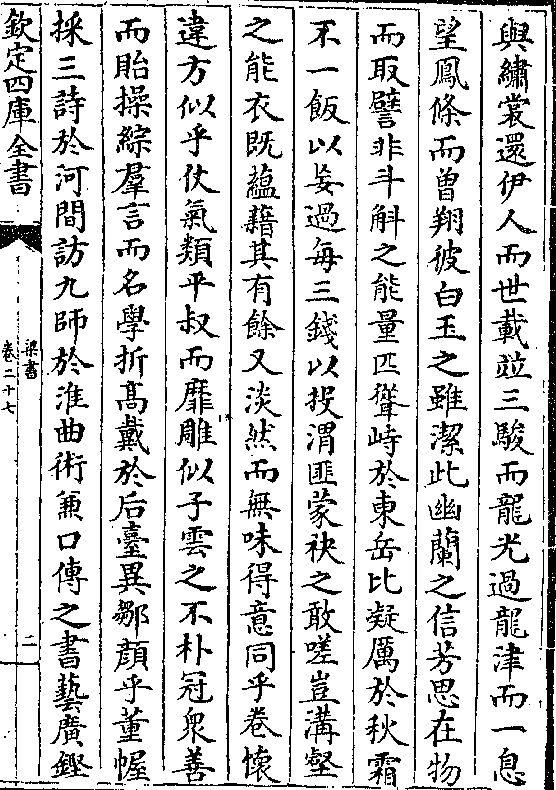 與繡裳還伊人而世載竝三駿而龍光過龍津而一息
望鳳條而曾翔彼白玉之雖潔此幽蘭之信芳思在物
而取譬非斗斛之能量匹聳峙於東岳比凝厲於秋霜
不一飯以妄過每三錢以投渭匪蒙袂之敢嗟豈溝壑
之能衣既藴藉其有餘又淡然而無味得意同乎卷懷
違方似乎仗氣類平叔而靡雕似子雲之不朴冠衆善
而貽操綜羣言而名學折髙戴於后臺異鄒顔乎董幄
採三詩於河間訪九師於淮曲術兼口傳之書藝廣鏗
欽定四庫全書
梁書
卷二十七
二